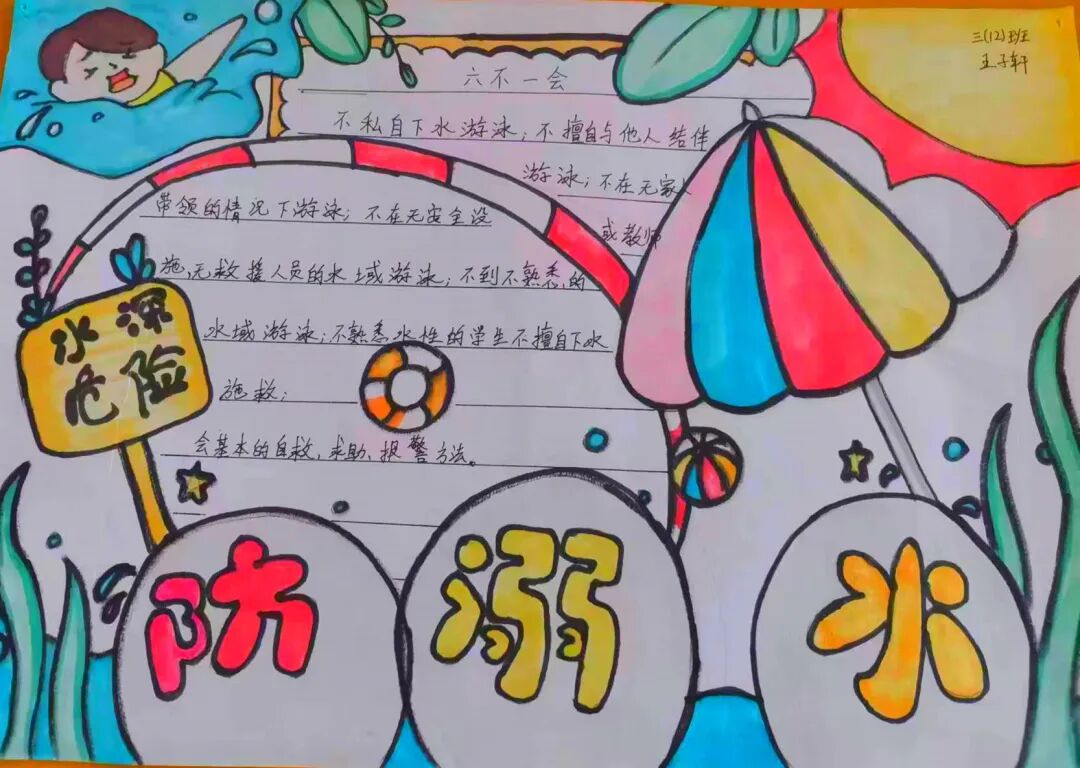 三(12)班
王子轩
六不一会
不私自下水游泳；不擅自与他人结伴
游泳；不在无家人
或教师
带领的情况下游泳；不在无安全设
施、无救援人员的水域游泳；不到不熟悉的
水域游泳；不熟悉水性的学生不擅自下水
施救；
会基本的自救、求助、报警方法。
水深
危险
防溺水